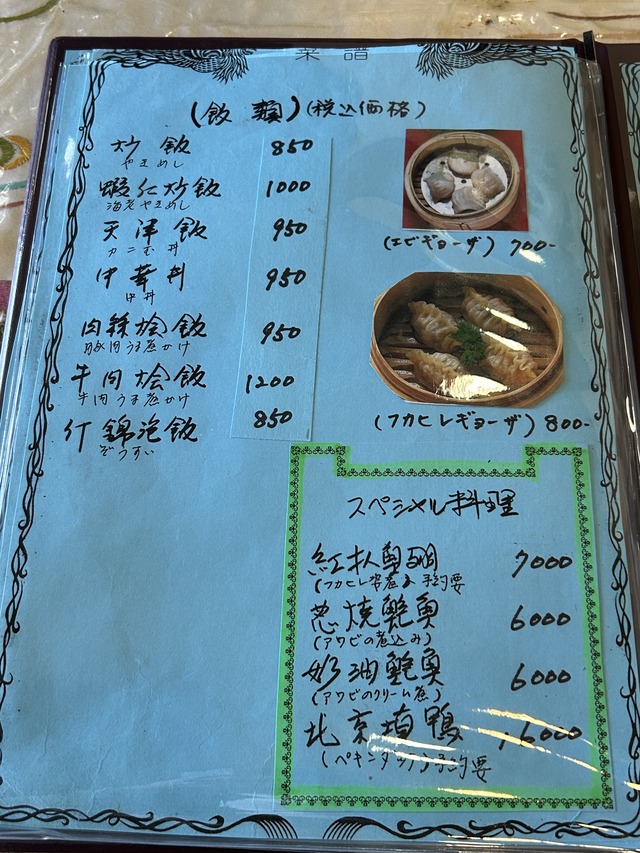 菜譜
(飯類)(税込価格)
炒飯 850
やきめし
蝦仁炒飯 1000
海老やきめし
天津飯 950
カニ玉丼
中華丼 950
中丼
肉絲燴飯 950
豚肉うま煮かけ
牛肉燴飯 1200
牛肉うま煮かけ
什錦泡飯 850
ぞうすい
(エビギョーザ) 700-
(フカヒレギョーザ) 800-
スペシャル料理
紅扒魚翅 7000
(フカヒレ姿煮) 予約要
葱燒鮑魚 6000
(アワビの煮込み)
奶油鮑魚 6000
(アワビのクリーム煮)
北京填鴨
(ペキンダック) 予約要